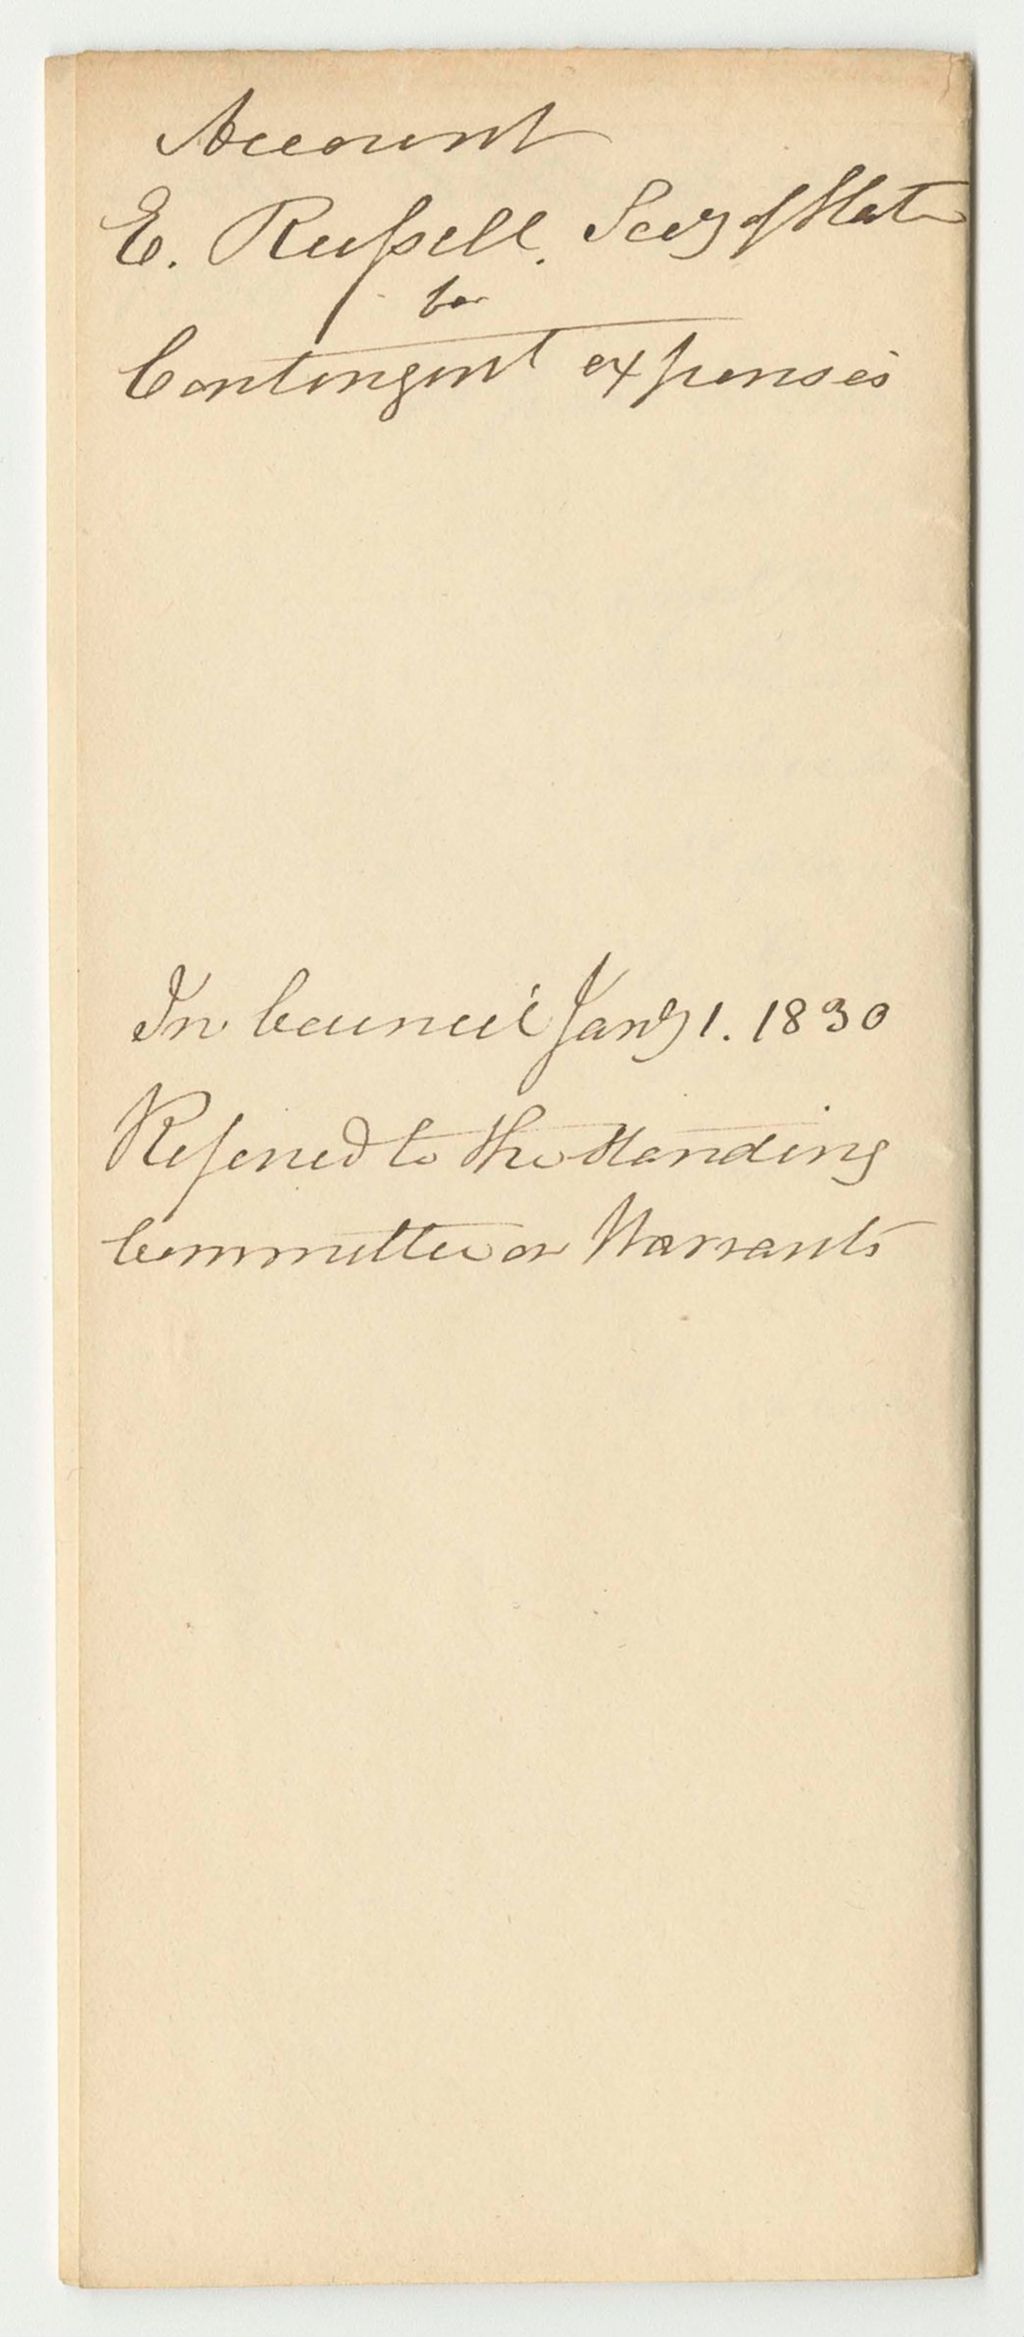 Account
E. Russell, Secy of State
for
Contingent expenses
In Council Jany 1. 1830
Referred to the Standing
Committee on Warrants